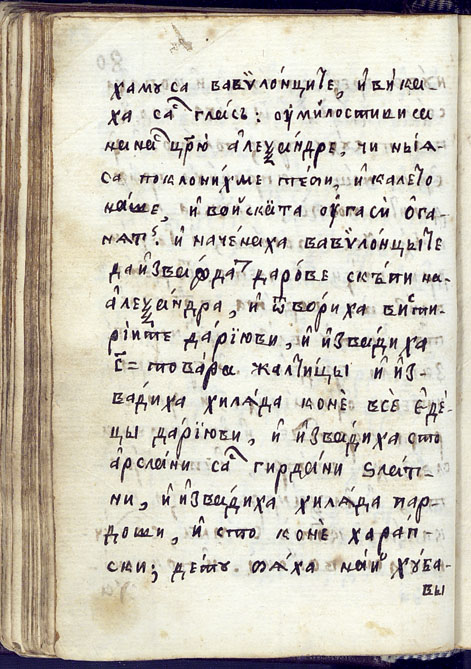 хамуса вавѷлонщите, и҆ вика-
ха саⷭ҇ гласъ: ѹ҆милостивиса
нанаⷭ҇ цр҃ю а҆леѯандре, чи ныѧ-
са поклонихме тебѝ, и҆ калето
наше, и҆ войската ѹ҆гасѝ ѻ҆га-
нѧт. и҆ наченаха вавѷлонцыте
да и҆звадаⷮ дарове скъпи на
а҆леѯандра, и҆ ѿвориха виⷭ҇ти-
рїите дарїюви, и҆ и҆звадиха
с҃= товара жалтицы и҆ и҆з-
вадиха хилѧда конѐ всѐ е҆де-
цы дарїюви, и҆ и҆звадиха сто
а҆рслани саⷭ҇ гирдани ѕлат-
ни, и҆ и҆звадиха хилѧда пар-
доши, и҆ сто конѐ харап-
ски; дето бѧха най хуба-
вы